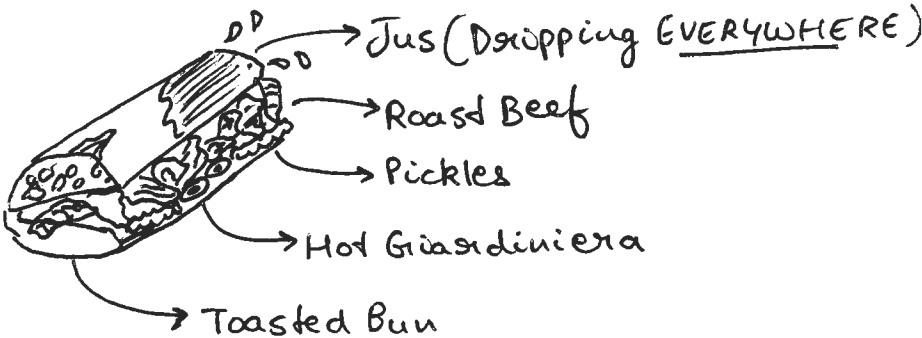 Jus (Dripping EVERYWHERE)
Roast Beef
Pickles
Hot Giardiniera
Toasted Bun